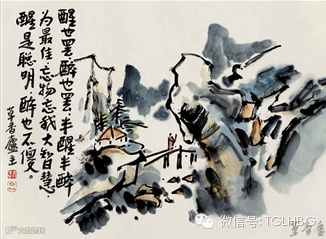 醒也罢醉也罢半醒半醉
为最佳忘物忘我大智慧
醒是聪明醉也不傻。
草香庐主
微信号: TGLHBG